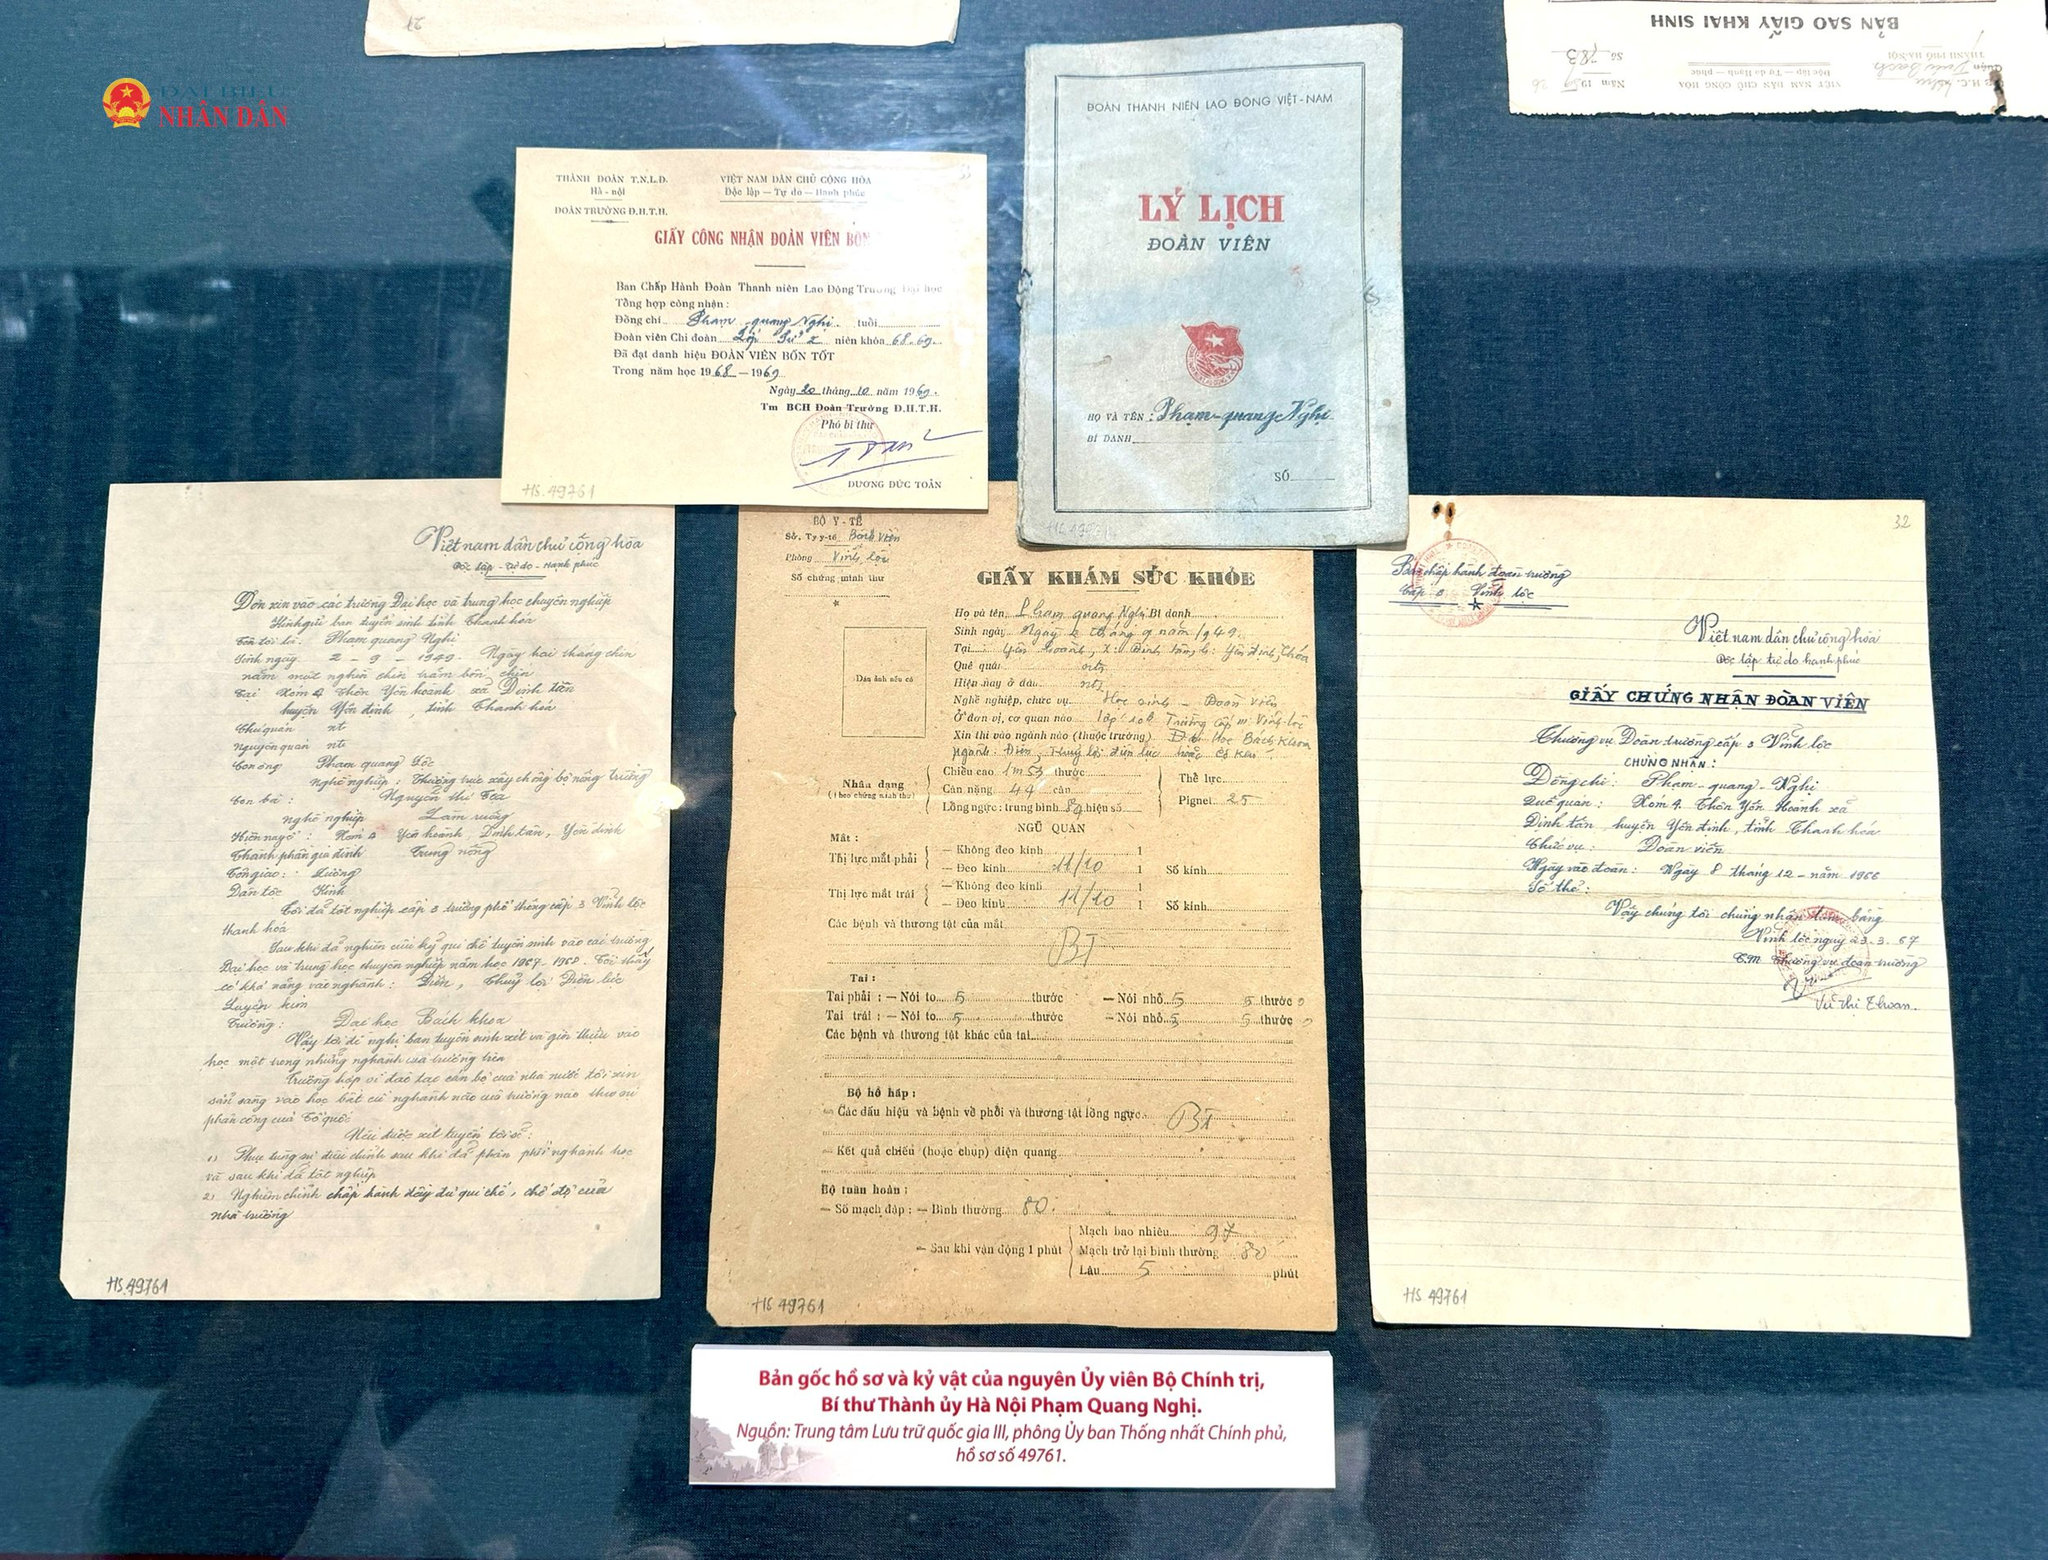 21
ĐẠI BIỂU
NHÂN DÂN
BẢN SAO GIẤY KHAI SINH
VIỆT NAM DÂN CHỦ CỘNG HÒA
Độc lập — Tự do — Hạnh phúc
THÀNH PHỐ HÀ-NỘI
Năm 1959
Số 783
THÀNH ĐOÀN T.N.L.Đ.
Hà - nội
ĐOÀN TRƯỜNG Đ.H.T.H.
VIỆT NAM DÂN CHỦ CỘNG HÒA
Độc lập — Tự do — Hạnh phúc
GIẤY CÔNG NHẬN ĐOÀN VIÊN BỐN
Ban Chấp Hành Đoàn Thanh niên Lao Động Trường Đại học
Tổng hợp công nhận :
Đồng chí Phạm quang Nghị tuổi
Đoàn viên Chi đoàn Lớp Sử I niên khóa 68.69.
Đã đạt danh hiệu ĐOÀN VIÊN BỐN TỐT
Trong năm học 1968 — 1969
Ngày 20 tháng 10 năm 1969.
Tm BCH Đoàn Trường Đ.H.T.H.
Phó bí thư
DƯƠNG ĐỨC TOẢN
HS.49761
ĐOÀN THANH NIÊN LAO ĐỘNG VIỆT-NAM
LÝ LỊCH
ĐOÀN VIÊN
HỌ VÀ TÊN : Phạm-quang Nghị
BÍ DANH
SỐ
Việt nam dân chủ cộng hòa
Độc lập - Tự do - Hạnh phúc
Đơn xin vào các trường Đại học và trung học chuyên nghiệp
Kính gửi ban tuyển sinh tỉnh Thanh hóa
Tên tôi là. Phạm quang Nghị
Sinh ngày 2 - 9 - 1949. Ngày hai tháng chín
năm một nghìn chín trăm bốn chín
Tại Xóm 4 Thôn Yên hoành xã Định tân
huyện Yên định, tỉnh Thanh hóa
Trú quán nt
Nguyên quán nt
Con ông Phạm quang Lộc
Nghề nghiệp : Thường trực xây dựng bộ nông trường
Con bà : Nguyễn thị
nghề nghiệp Làm ruộng
Hiện nay ở : Xóm 4 Yên hoành, Định tân, Yên định
Thành phần gia đình Trung nông
Tôn giáo : Lương
Dân tộc Kinh
Tôi đã tốt nghiệp cấp 3 trường phổ thông cấp 3 Vĩnh Lộc
thanh hóa
Sau khi đã nghiên cứu kỹ qui chế tuyển sinh vào các trường
Đại học và trung học chuyên nghiệp năm học 1967-1968. Tôi thấy
có khả năng vào nghành : Điện, Thuỷ lợi Điện lực
Luyện kim
Trường : Đại học Bách khoa
Vậy tôi đề nghị ban tuyển sinh xét và giới thiệu vào
học một trong những nghành của trường trên
Trường hợp vì đào tạo cán bộ của nhà nước tôi xin
sẵn sàng vào học bất cứ nghành nào của trường nào theo sự
phân công của Tổ quốc
Nếu được xét tuyển tôi sẽ :
1) Phục tùng sự điều chỉnh sau khi đã phân phối nghành học
và sau khi đã tốt nghiệp
2) Nghiêm chỉnh chấp hành đầy đủ qui chế, chế độ của
nhà trường
HS.49761
BỘ Y - TẾ
Sở, Ty y-tế Bệnh viện
Phòng Vĩnh lộc
Số chứng minh thư
GIẤY KHÁM SỨC KHỎE
Họ và tên Phạm quang Nghị Bí danh
Sinh ngày Ngày 2 tháng 9 năm 1949.
Tại Yên hoành, x: Định tân, h: Yên định, T hóa
Quê quán nt
Hiện nay ở đâu nt
Nghề nghiệp, chức vụ Học sinh - Đoàn viên
Ở đơn vị, cơ quan nào lớp 10 Trường cấp III Vĩnh-lộc
Xin thi vào ngành nào (thuộc trường) Đại Học Bách Khoa
Ngành : Điện, Thuỷ lợi điện lực hoặc cơ khí
Dán ảnh nếu có
Nhân dạng
(theo chứng minh thư)
Chiều cao 1m53 thước
Cân nặng 44 cân
Lồng ngực : trung bình hiệu số
Thể lực
Pignet 25
NGŨ QUAN
Mắt :
Thị lực mắt phải
— Không đeo kính 1
— Đeo kính 11/10 1 Số kính
Thị lực mắt trái
— Không đeo kính 1
— Đeo kính 11/10 1 Số kính
Các bệnh và thương tật của mắt
BT
Tai :
Tai phải : — Nói to 5 thước — Nói nhỏ 5 5 thước
Tai trái : — Nói to 5 thước — Nói nhỏ 5 5 thước
Các bệnh và thương tật khác của tai
Bộ hô hấp :
— Các dấu hiệu và bệnh về phổi và thương tật lồng ngực BT
— Kết quả chiếu (hoặc chụp) điện quang
Bộ tuần hoàn :
— Số mạch đập : — Bình thường 80.
— Sau khi vận động 1 phút
Mạch bao nhiêu 97
Mạch trở lại bình thường 80
Lâu 5 phút
HS 49761
32
Ban chấp hành đoàn trường
Cấp 3 Vĩnh lộc
Việt nam dân chủ cộng hòa
Độc lập tự do hạnh phúc
GIẤY CHỨNG NHẬN ĐOÀN VIÊN
Thường vụ Đoàn trường cấp 3 Vĩnh lộc
CHỨNG NHẬN :
Đồng chí : Phạm - quang - Nghị
Quê quán : Xóm 4 Thôn Yên Hoành xã
Định tân, huyện Yên định, tỉnh Thanh hóa
Chức vụ : Đoàn viên
Ngày vào đoàn : Ngày 8 tháng 12 - năm 1966
Số thẻ :
Vậy chúng tôi chứng nhận làm bằng
Vĩnh lộc ngày 23-3-67
T.M Thường vụ đoàn trường
Vũ thị Thoan.
HS 49761
Bản gốc hồ sơ và kỷ vật của nguyên Ủy viên Bộ Chính trị,
Bí thư Thành ủy Hà Nội Phạm Quang Nghị.
Nguồn: Trung tâm Lưu trữ quốc gia III, phông Ủy ban Thống nhất Chính phủ,
hồ sơ số 49761.